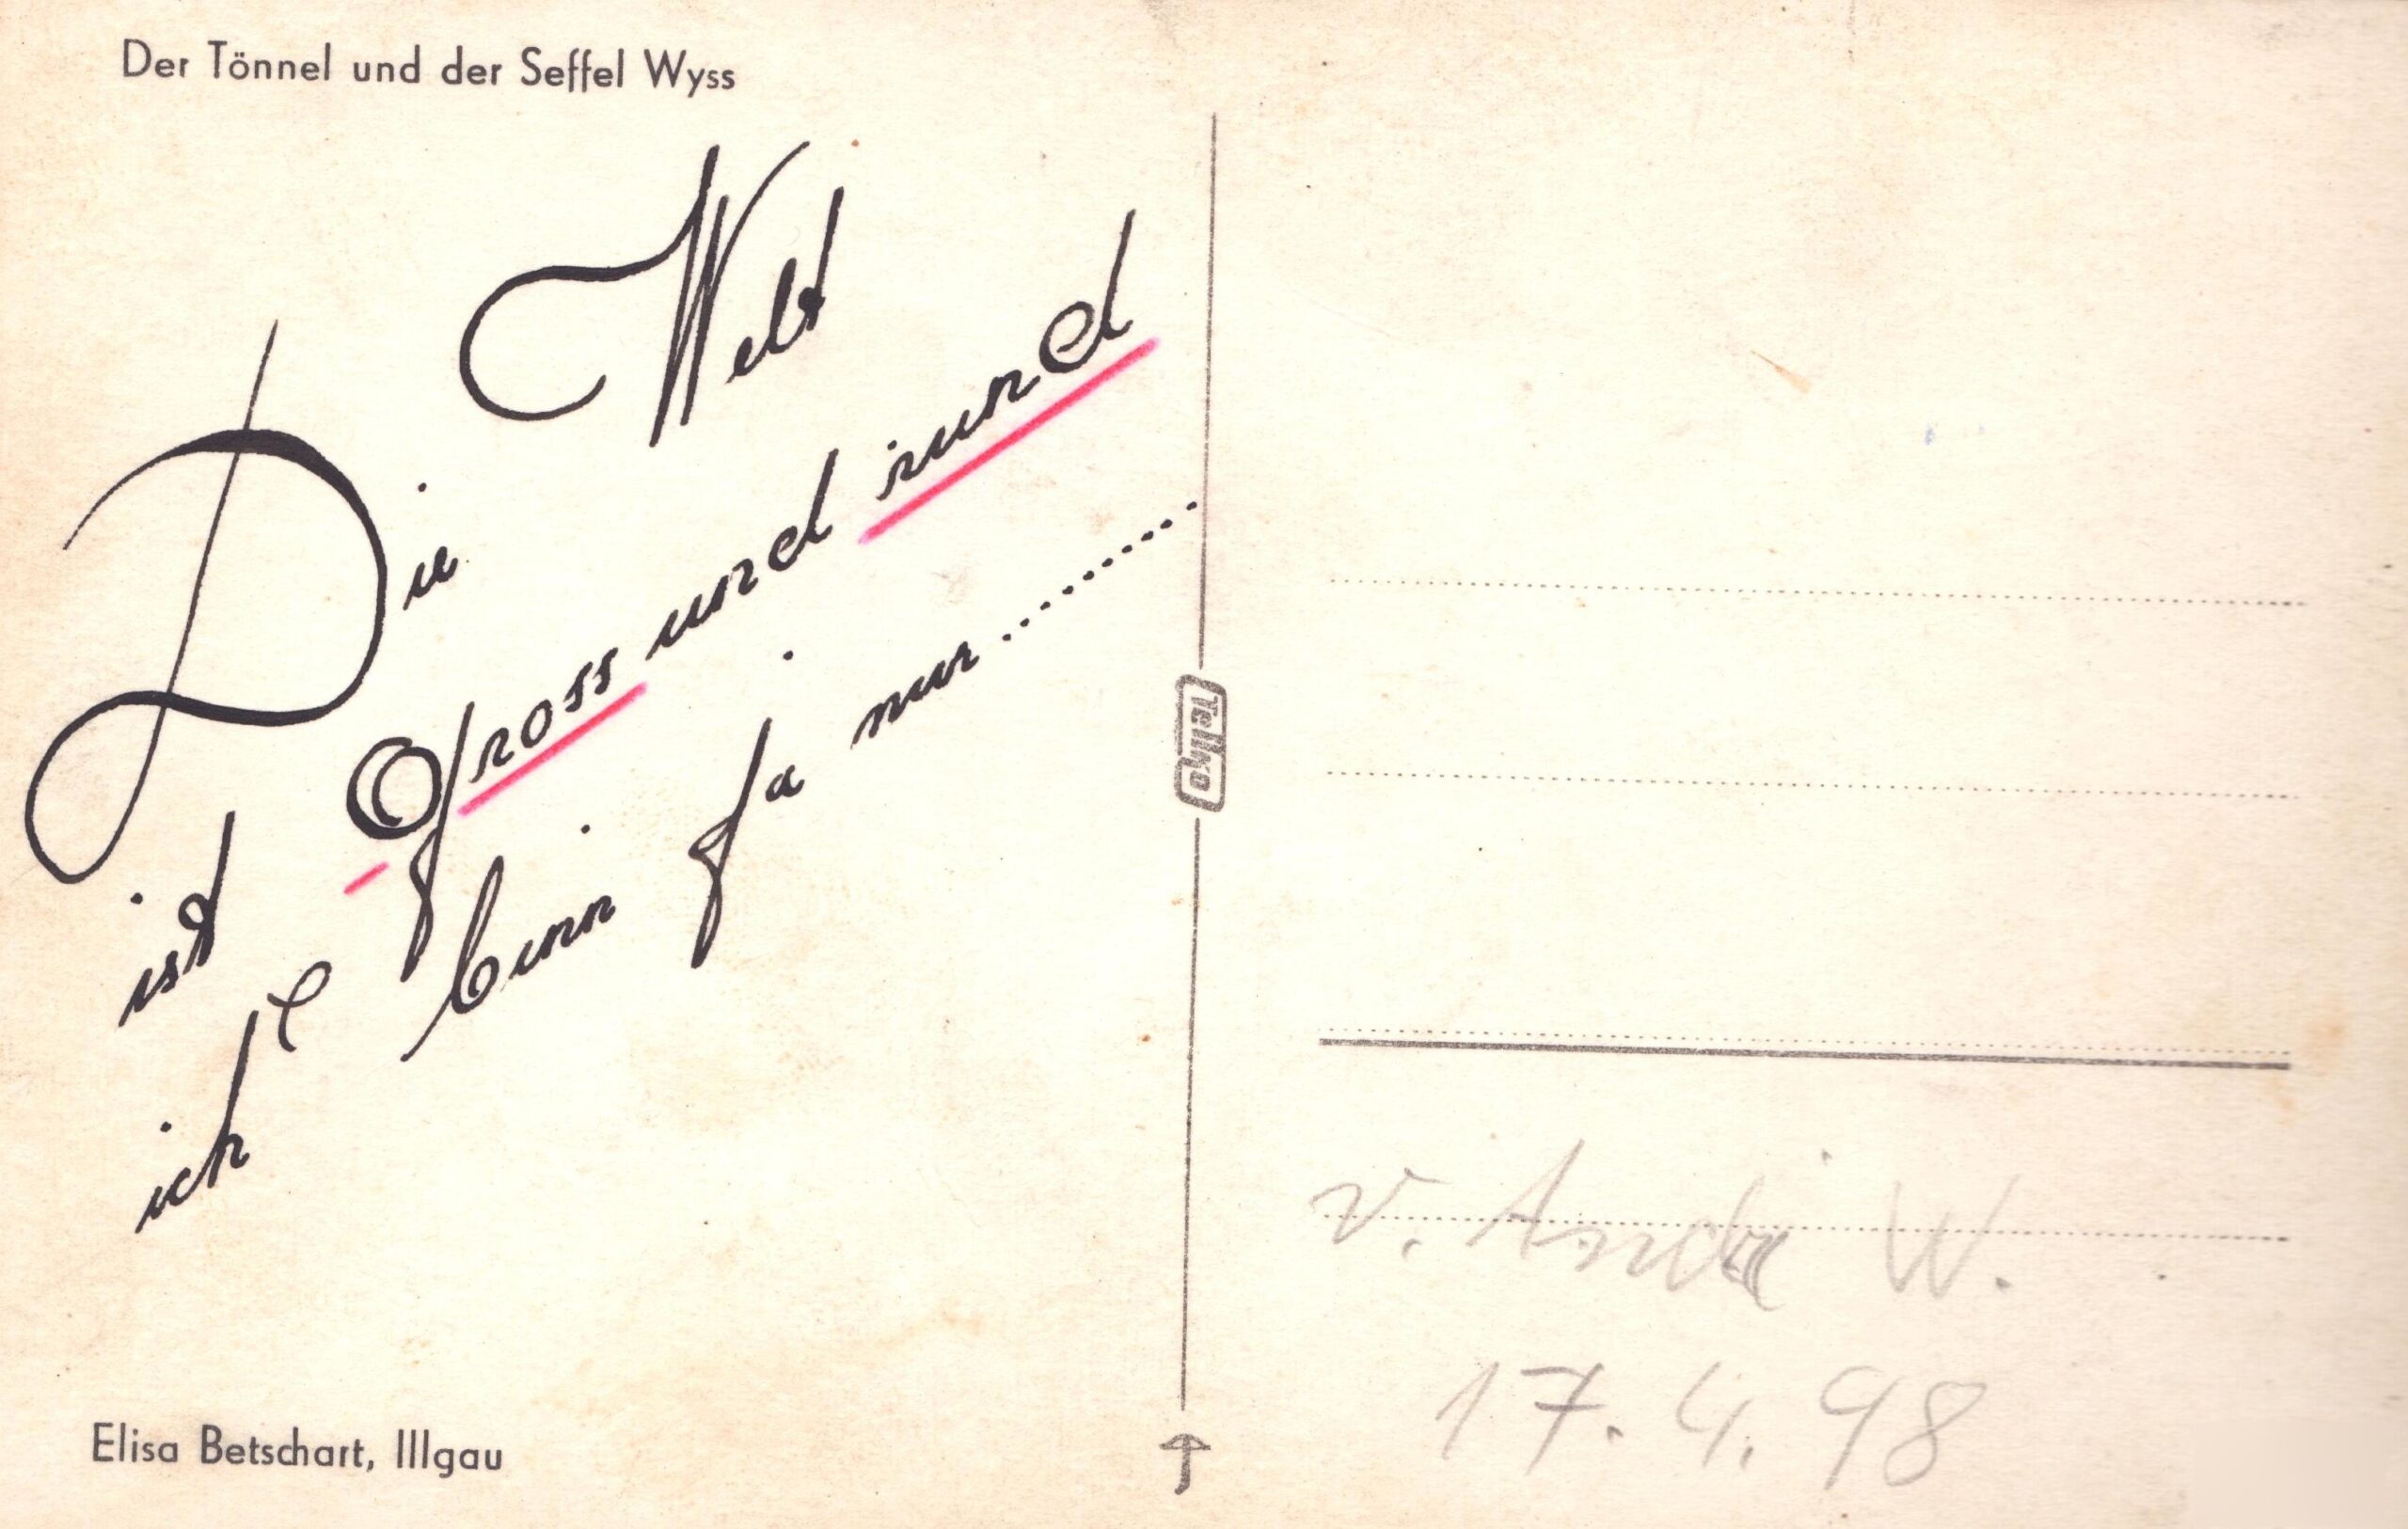 Der Tönnel und der Seffel Wyss
Die Welt
ist Gross und rund
ich binn ja nur ...........
Elisa Betschart, Illgau
Tellko
v. W.
17.4.98